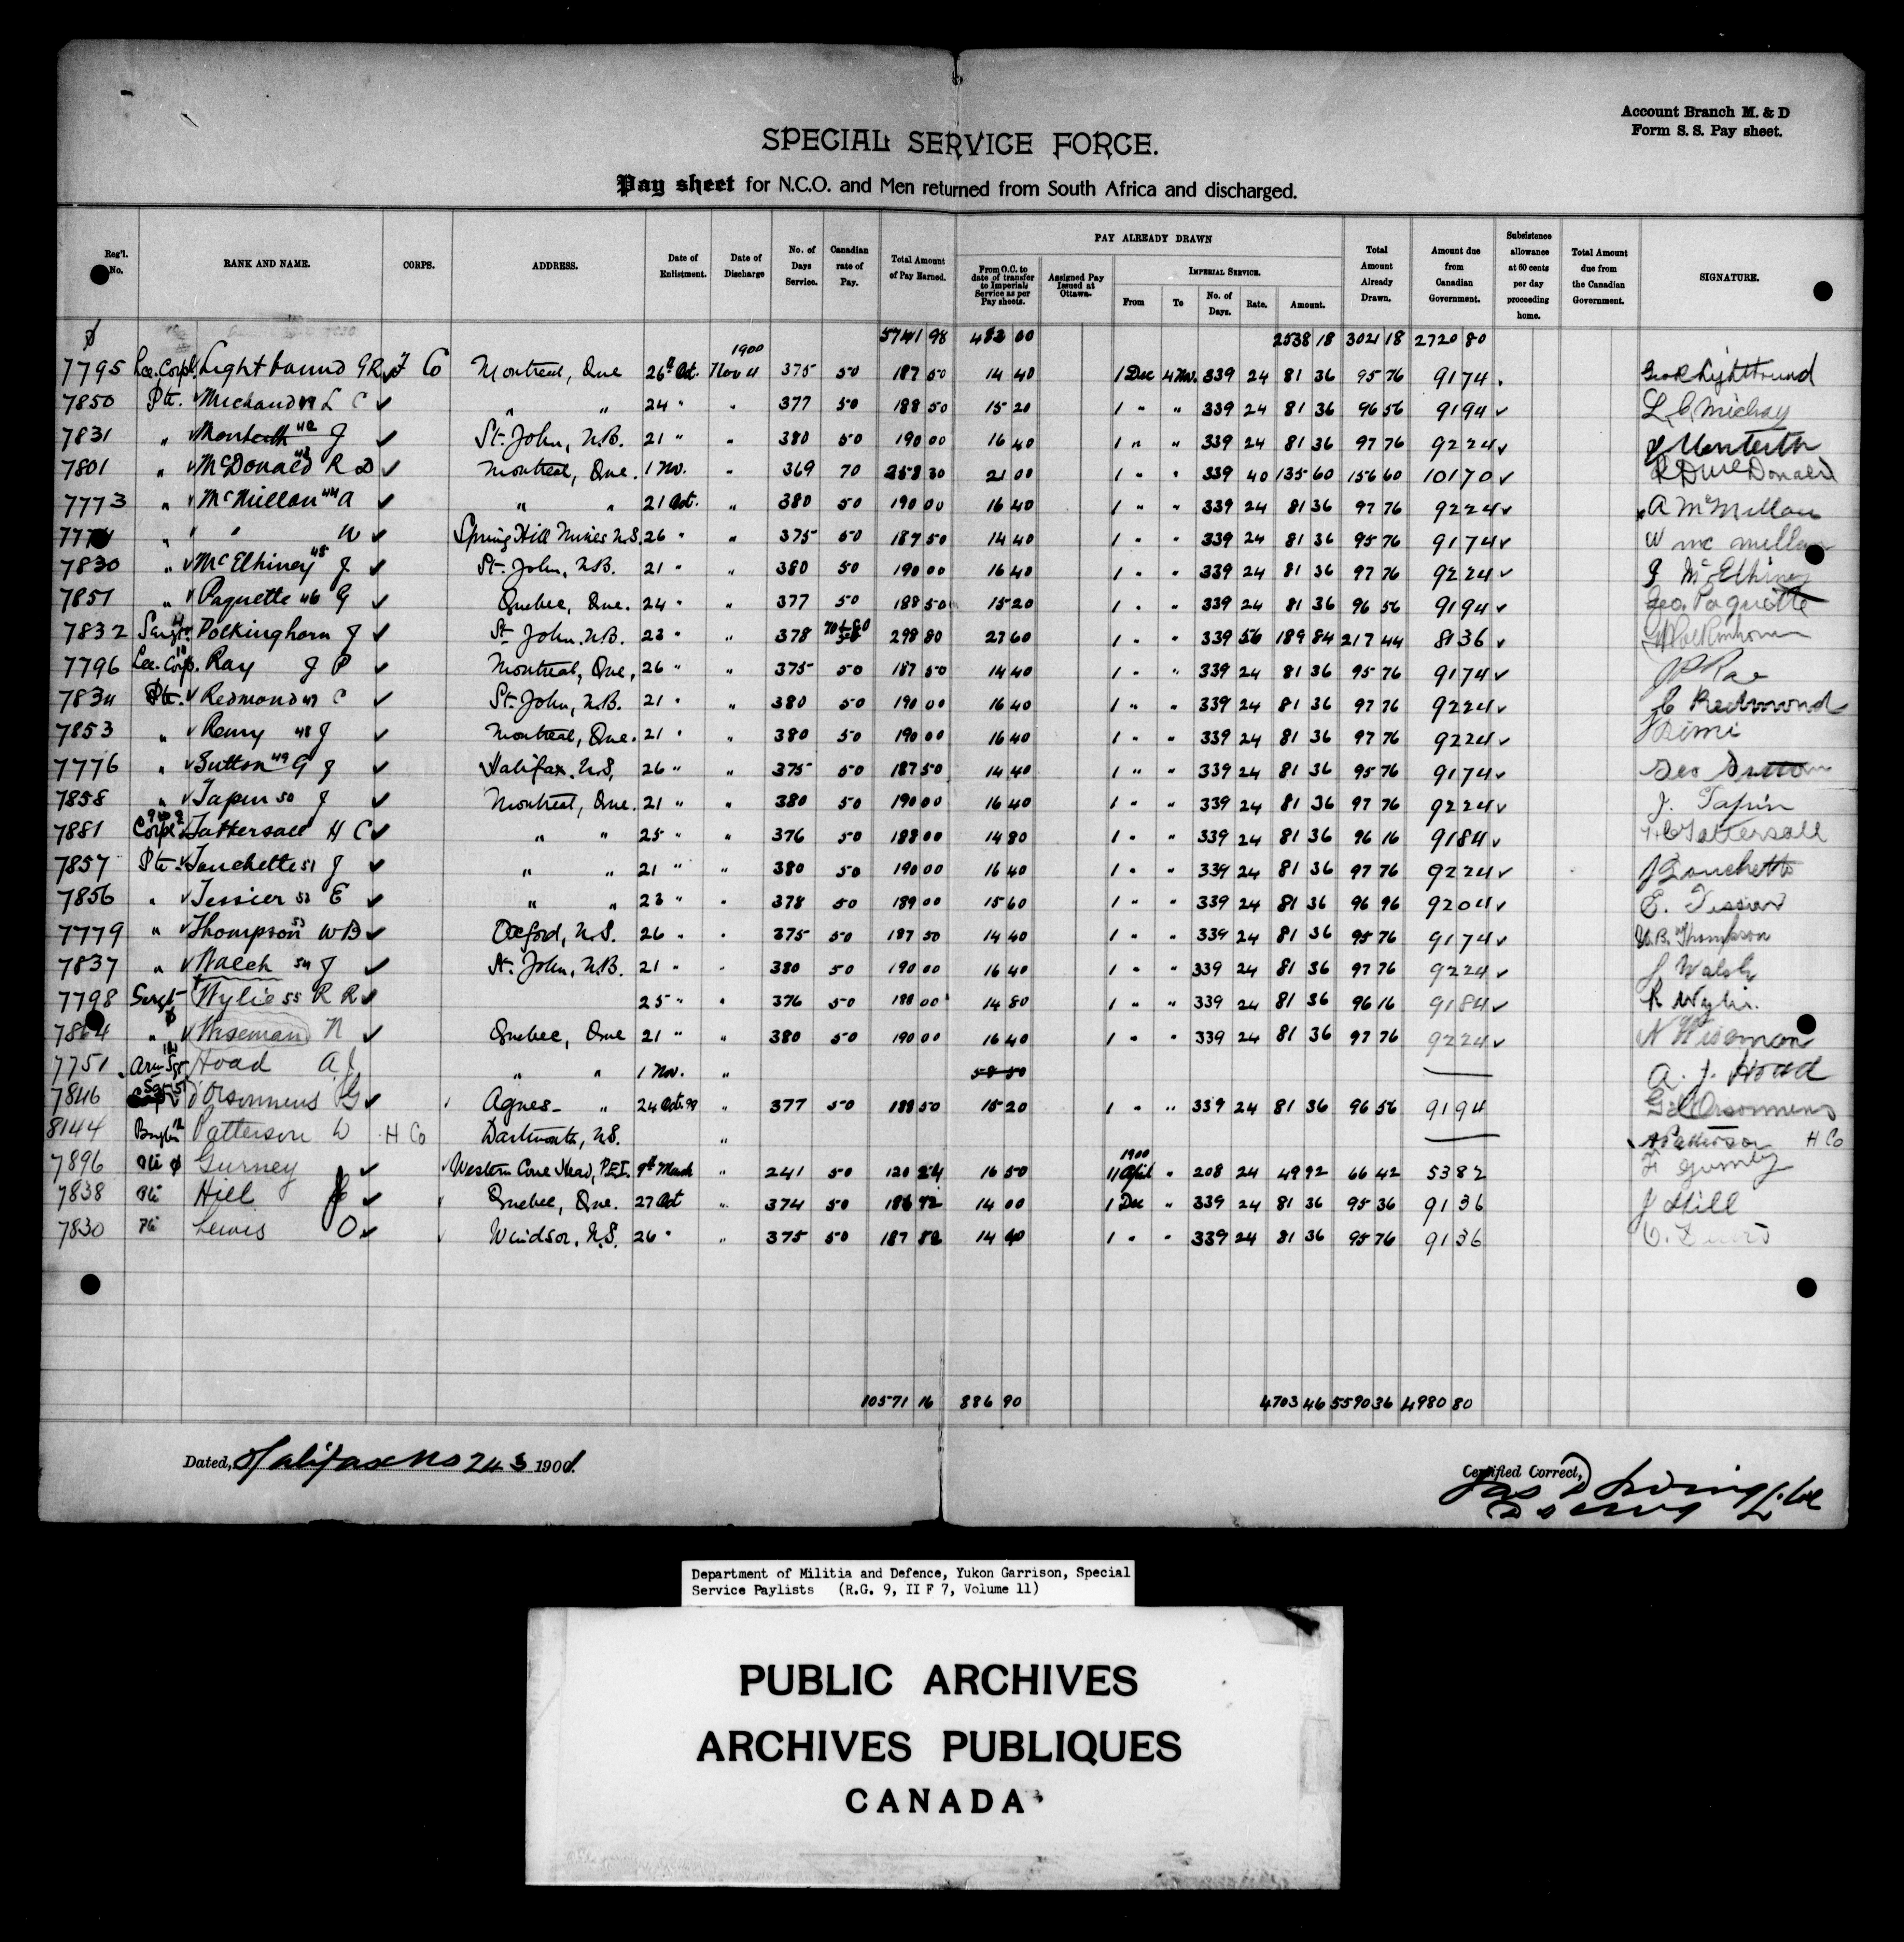 Account Branch M. & D
Form S. S. Pay sheet.
SPECIAL SERVICE FORCE.
Pay sheet for N.C.O. and Men returned from South Africa and discharged.
Reg'l. No. RANK AND NAME. CORPS. ADDRESS. Date of Enlistment. Date of Discharge No. of Days Service. Canadian rate of Pay. Total Amount of Pay Earned. PAY ALREADY DRAWN From O.C. to date of transfer to Imperial Service as per Pay sheets. Assigned Pay Issued at Ottawa. IMPERIAL SERVICE. From To No. of Days. Rate. Amount. Total Amount Already Drawn. Amount due from Canadian Government. Subsistence allowance at 60 cents per day proceeding home. Total Amount due from the Canadian Government. SIGNATURE.
5741 98 483 00 2538 18 3021 18 2720 80
1900
7795 Lce. Corpl. Lightbound G R F Co Montreal, Que 26th Oct. Nov 4 375 50 187 50 14 40 1 Dec 4 Nov. 339 24 81 36 95 76 91 74 Geo R Lightbound
7850 Pte. Michaud L C " " 24 " " 377 50 188 50 15 20 1 " " 339 24 81 36 96 56 91 94 L. C Michay
7831 " Monteith 42 J St. John, N.B. 21 " " 380 50 190 00 16 40 1 " " 339 24 81 36 97 76 92 24 J Monteith
7801 " McDonald 43 R D Montreal, Que. 1 Nov. " 369 70 258 30 21 00 1 " " 339 40 135 60 156 60 101 70 R D McDonald
7773 " McMillan 44 A " " 21 Oct. " 380 50 190 00 16 40 1 " " 339 24 81 36 97 76 92 24 A McMillan
777 " " " W Spring Hill Mines N.S. 26 " " 375 50 187 50 14 40 1 " " 339 24 81 36 95 76 91 74 W mc millan
7830 " McElhiney 45 J St. John, N.B. 21 " " 380 50 190 00 16 40 1 " " 339 24 81 36 97 76 92 24 J McElhiney
7851 " Paquette 46 G Quebec, Que. 24 " " 377 50 188 50 15 20 1 " " 339 24 81 36 96 56 91 94 Geo. Paquette
7832 Sergt. Polkinghorn J St. John. N.B. 23 " " 378 298 80 27 60 1 " " 339 56 189 84 217 44 81 36
7796 Lce. Corp. Ray J P Montreal, Que, 26 " " 375 50 187 50 14 40 1 " " 339 24 81 36 95 76 91 74 J P Rae
7834 Pte. Redmond 47 C St. John, N.B. 21 " " 380 50 190 00 16 40 1 " " 339 24 81 36 97 76 92 24 C Redmond
7853 " Remy 48 J Montreal, Que. 21 " " 380 50 190 00 16 40 1 " " 339 24 81 36 97 76 92 24
7776 " Sutton 49 G J Halifax. N.S, 26 " " 375 50 187 50 14 40 1 " " 339 24 81 36 95 76 91 74 Geo Sutton
7858 " Tapin 50 J Montreal, Que. 21 " " 380 50 190 00 16 40 1 " " 339 24 81 36 97 76 92 24 J. Tapin
7881 Corpl Tattersall H C " " 25 " " 376 50 188 00 14 80 1 " " 339 24 81 36 96 16 91 84 H C Tattersall
7857 Pte. Touchette 51 J " " 21 " " 380 50 190 00 16 40 1 " " 339 24 81 36 97 76 92 24 J Touchette
7856 " Tessier 52 E " " 23 " " 378 50 189 00 15 60 1 " " 339 24 81 36 96 96 92 04 E. Tessier
7779 " Thompson 53 W B Oxford, N.S. 26 " " 375 50 187 50 14 40 1 " " 339 24 81 36 95 76 91 74 W. B. Thompson
7837 " Walch 54 J St. John, N.B. 21 " " 380 50 190 00 16 40 1 " " 339 24 81 36 97 76 92 24 J Walsh
7798 Sergt Wylie 55 R R 25 " " 376 50 188 00 14 80 1 " " 339 24 81 36 96 16 91 84 R Wylie.
7864 " Wiseman N Quebec, Que 21 " " 380 50 190 00 16 40 1 " " 339 24 81 36 97 76 92 24 N Wiseman
7751 Hoad A J " " 1 Nov. " 58 50 A. J. Hoad
7846 d'Orsonnens G Agnes " 24 Oct. 99 " 377 50 188 50 15 20 1 " " 339 24 81 36 96 56 91 94 G. d'Orsonnens
8144 Bugler Patterson W H Co Dartmouth, N.S. " Patterson H Co
1900
7896 Pte Gurney Western Cove Head, P.E.I. 9th March " 241 50 120 24 16 50 11 April " 208 24 49 92 66 42 53 82 Gurney
7838 Pte Hill J Quebec, Que. 27 Oct " 374 50 186 72 14 00 1 Dec " 339 24 81 36 95 36 91 36 J Hill
7830 Pte Lewis O Windsor, N.S. 26 " " 375 50 187 82 14 40 1 " " 339 24 81 36 95 76 91 36 O. Lewis
10571 16 886 90 4703 46 5590 36 4980 80
Dated, Halifax NS 24 3 1901.
Certified Correct,
Department of Militia and Defence, Yukon Garrison, Special
Service Paylists (R.G. 9, II F 7, Volume 11)
PUBLIC ARCHIVES
ARCHIVES PUBLIQUES
CANADA